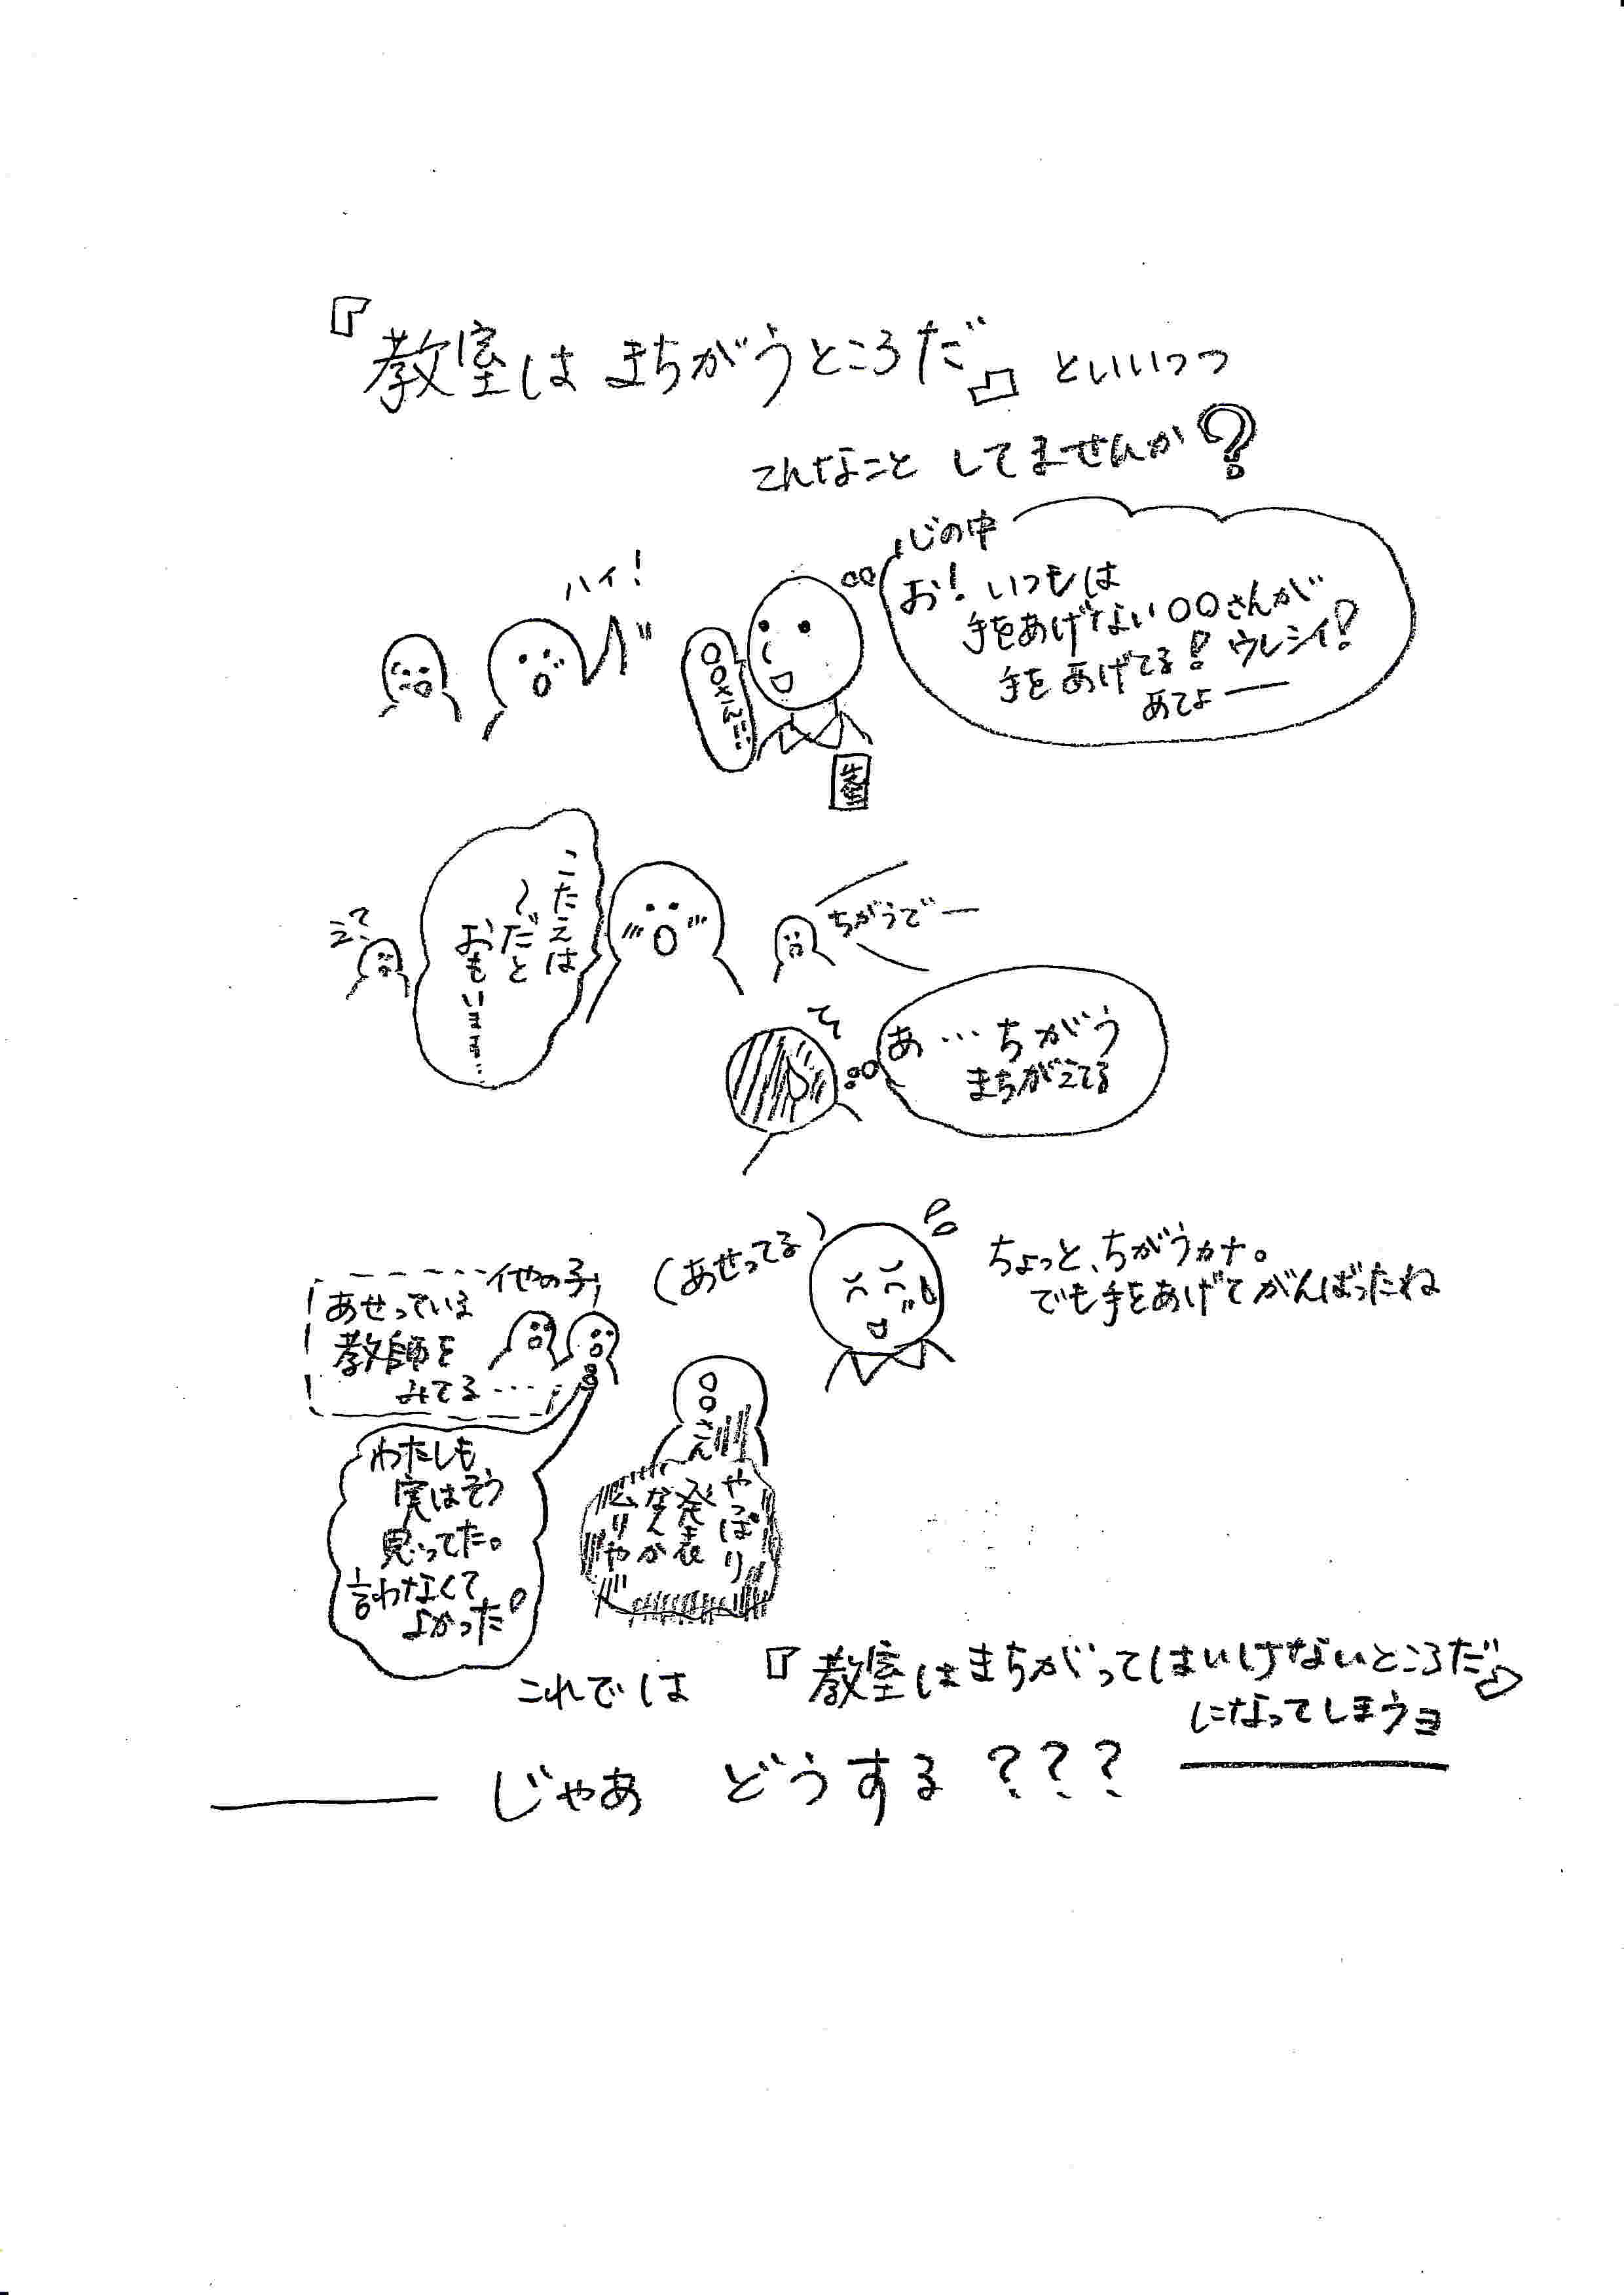 『教室は まちがうところだ』といいつつ
こんなこと してませんか?
ハイ!
○○さん!…
先生
心の中
お!いつもは
手をあげない○○さんが
手をあげてる!ウレシイ!
あてよー
こたえは
〜だと
おもいます…
えっ
ちがうでー
あ…ちがう
まちがえてる
(あせってる)
ちょっと、ちがうカナ。
でも手をあげてがんばったね
他の子
あせっている
教師を
みてる…
わたしも
実はそう
思ってた。
言わなくて
よかった!
○○さん
やっぱり
発表
なんか
ムリや
これでは『教室はまちがってはいけないところだ』
になってしまうヨ
じゃあ どうする???